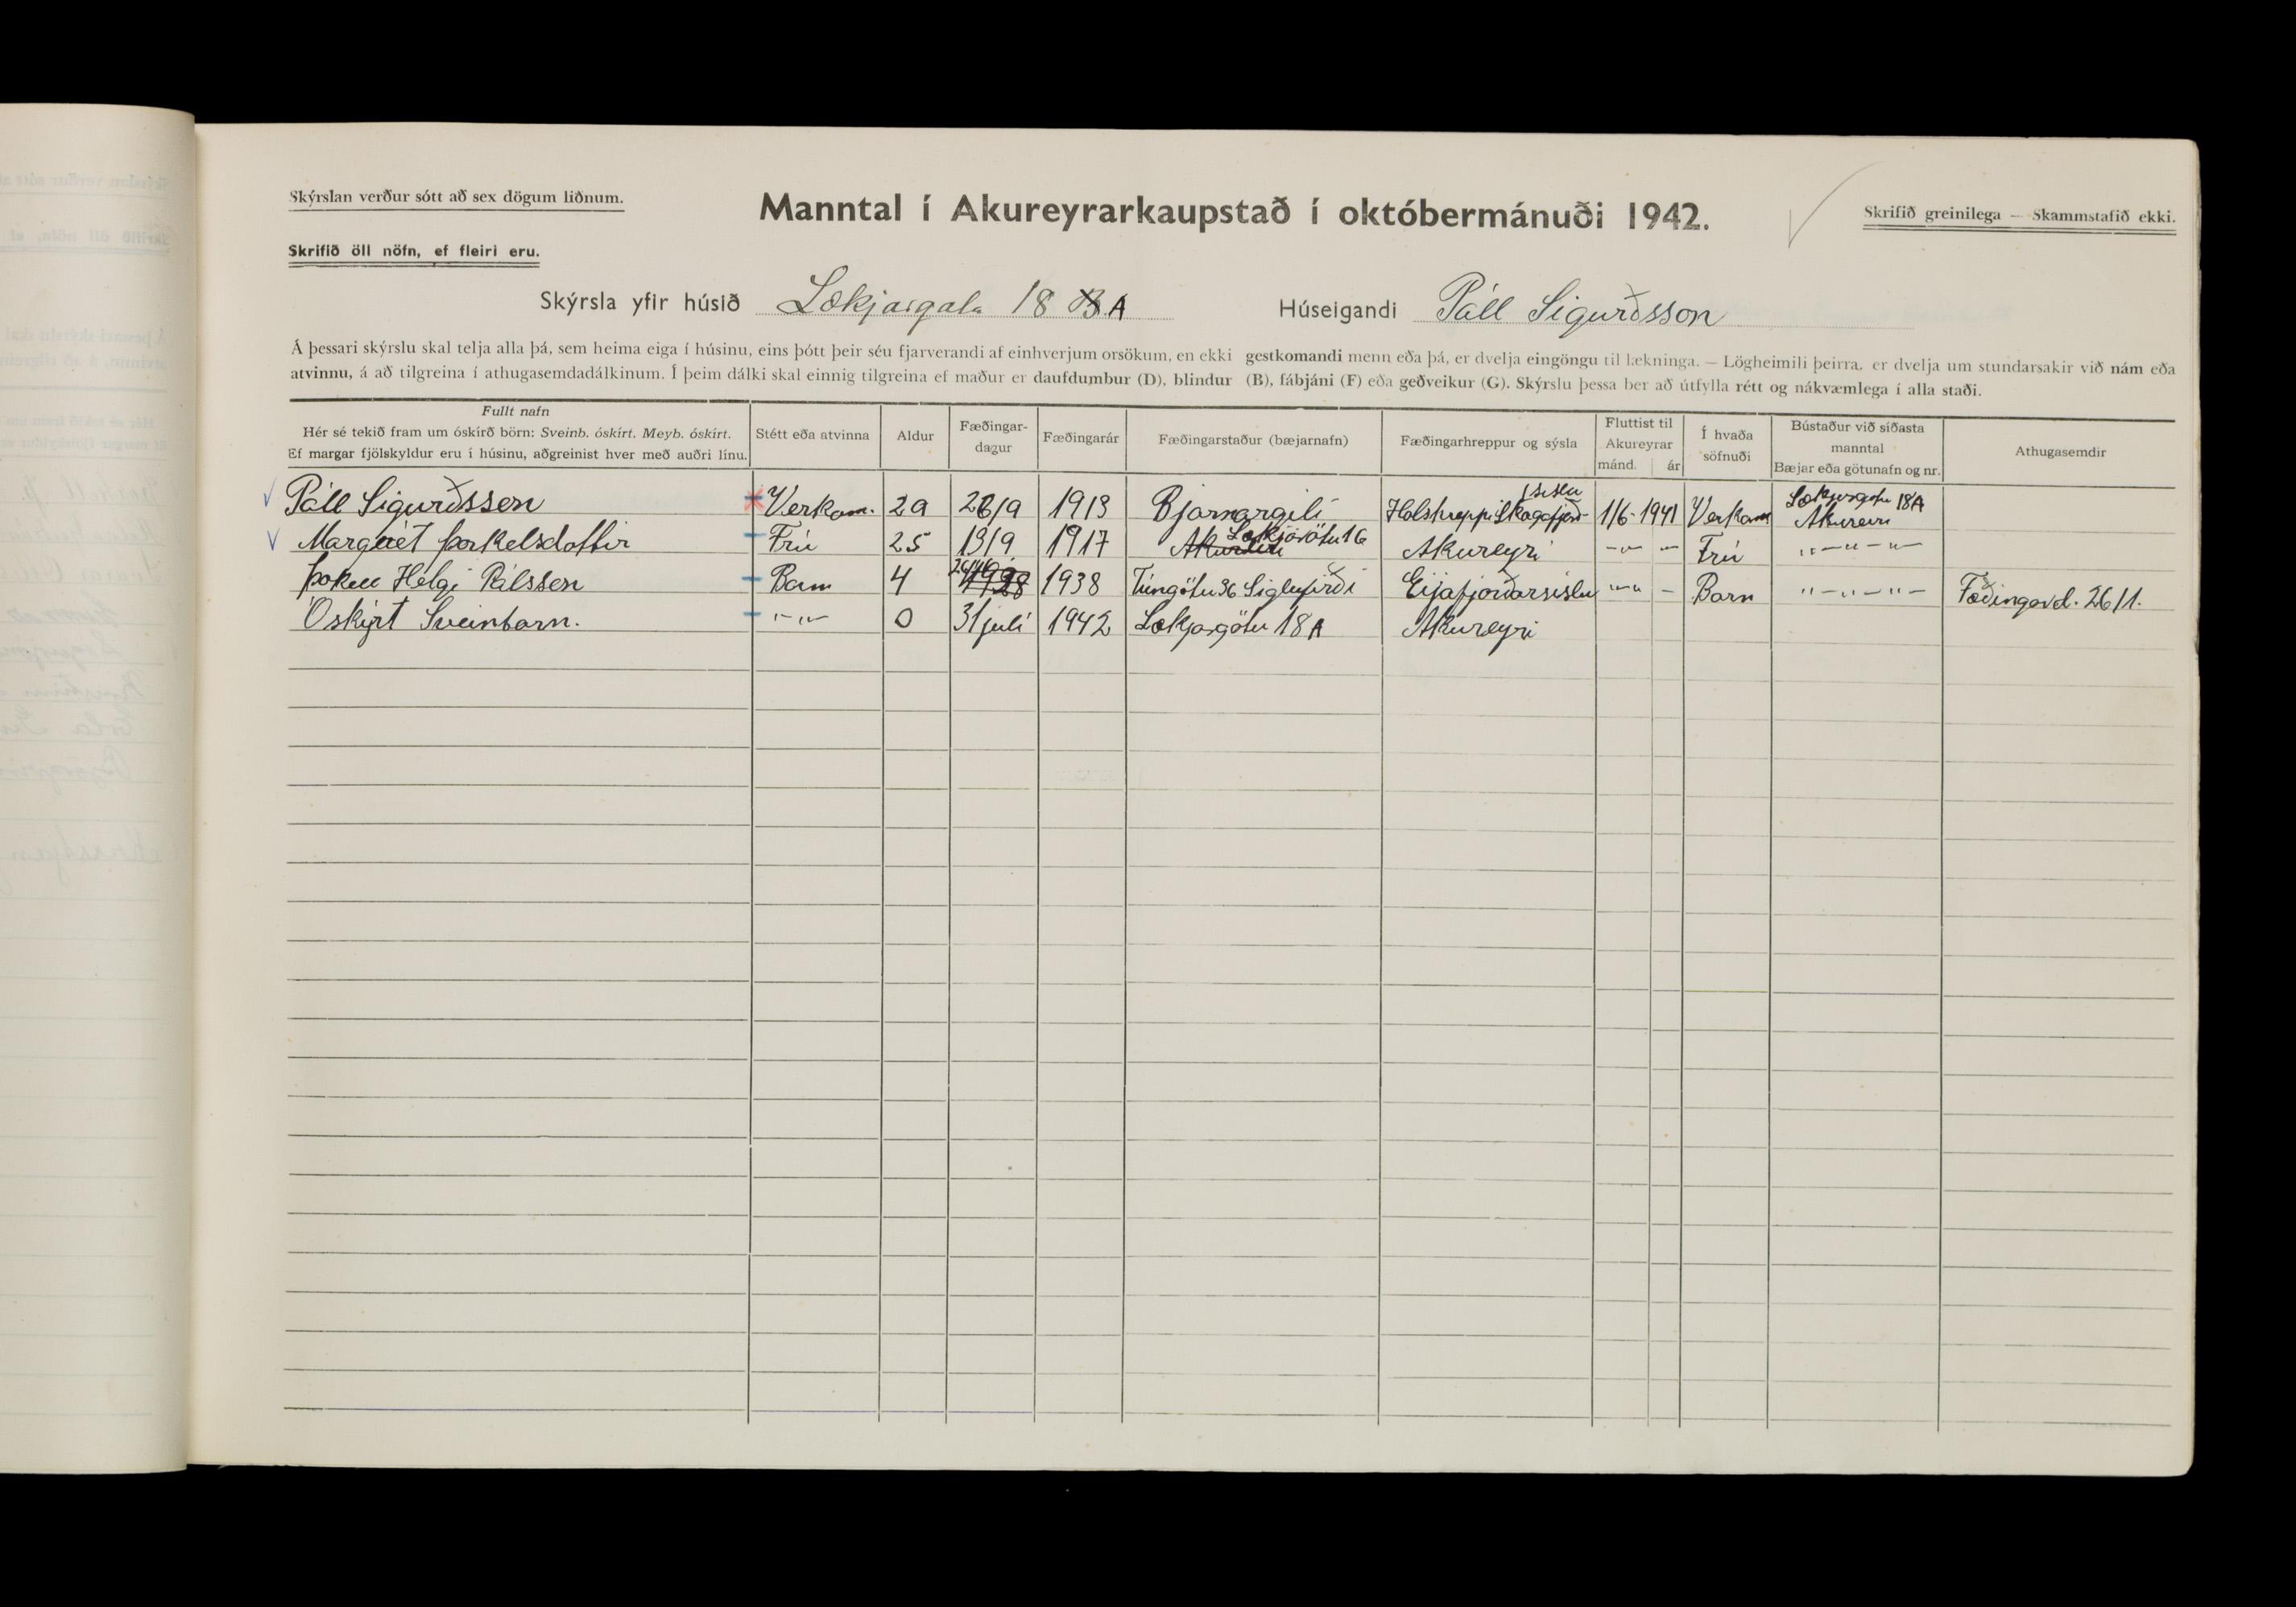 Skýrslan verður sótt að sex dögum liðnum.
Manntal í Akureyrarkaupstað í októbermánuði 1942.
Skrifið greinilega — Skammstafið ekki.
Skrifið öll nöfn, ef fleiri eru.
Skýrsla yfir húsið Lækjargata 18 A
Húseigandi Páll Sigurðsson
Á þessari skýrslu skal telja alla þá, sem heima eiga í húsinu, eins þótt þeir séu fjarverandi af einhverjum orsökum, en ekki gestkomandi menn eða þá, er dvelja eingöngu til lækninga. — Lögheimili þeirra, er dvelja um stundarsakir við nám eða
atvinnu, á að tilgreina í athugasemdadálkinum. Í þeim dálki skal einnig tilgreina ef maður er daufdumbur (D), blindur (B), fábjáni (F) eða geðveikur (G). Skýrslu þessa ber að útfylla rétt og nákvæmlega í alla staði.
Fullt nafn
Hér sé tekið fram um óskírð börn: Sveinb. óskírt. Meyb. óskírt.
Ef margar fjölskyldur eru í húsinu, aðgreinist hver með auðri línu.
Stétt eða atvinna
Aldur
Fæðingar-
dagur
Fæðingarár
Fæðingarstaður (bæjarnafn)
Fæðingarhreppur og sýsla
Fluttist til
Akureyrar
mánd. ár
Í hvaða
söfnuði
Bústaður við síðasta
manntal
Bæjar eða götunafn og nr.
Athugasemdir
Páll Sigurðsson Verkam. 29 26/9 1913 Bjarnargili Holshreppi Skagafjarð- sislu 1/6- 1941 Verkam Lækjargötu 18A Akureyri
Margrét Þorkelsdottir Frú 25 13/9 1917 Lækjargötu 16 Akureyri -"- - Frú "-"-"-
Helgi Pálsson Barn 4 1938 Túngötu 36 Siglufirði Eijafjorðarsislu "-" - Barn "-"-"- Fæðingard. 26/1.
Óskírt Sveinbarn. "-"- 0 31 julí 1942 Lækjargötu 18 A Akureyri